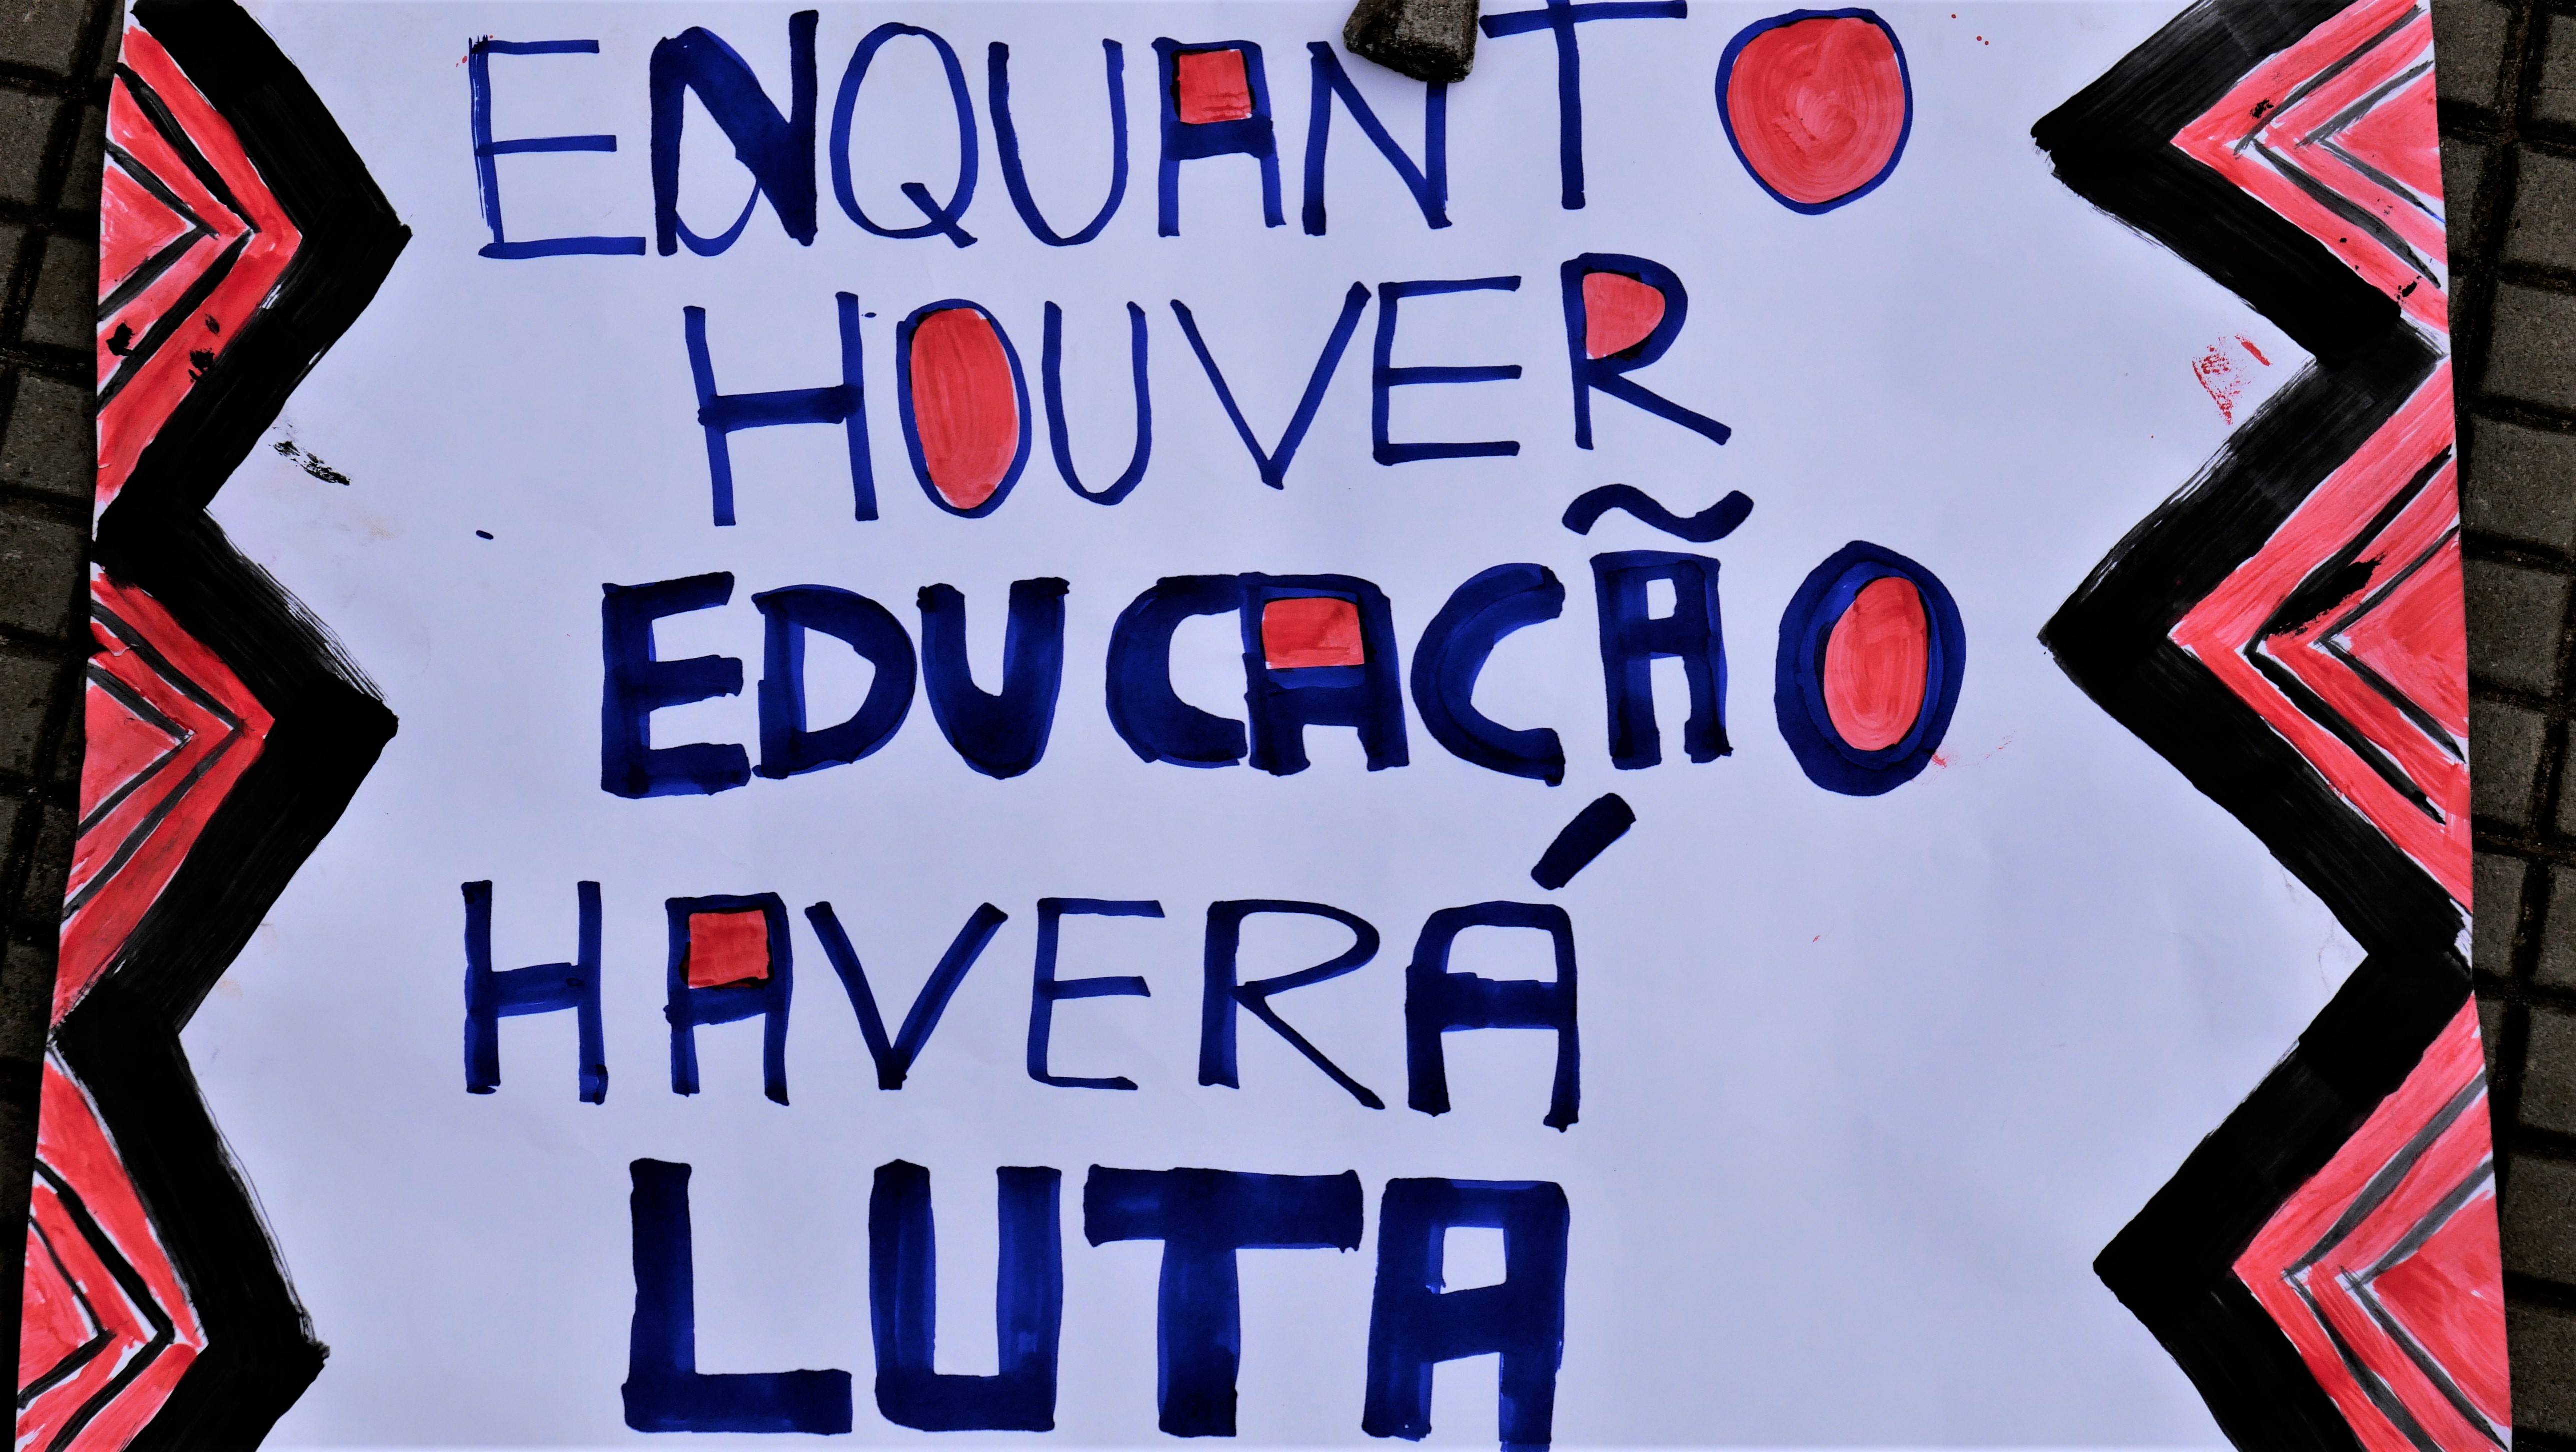 ENQUANTO
HOUVER
EDUCACÃO
HAVERÁ
LUTA